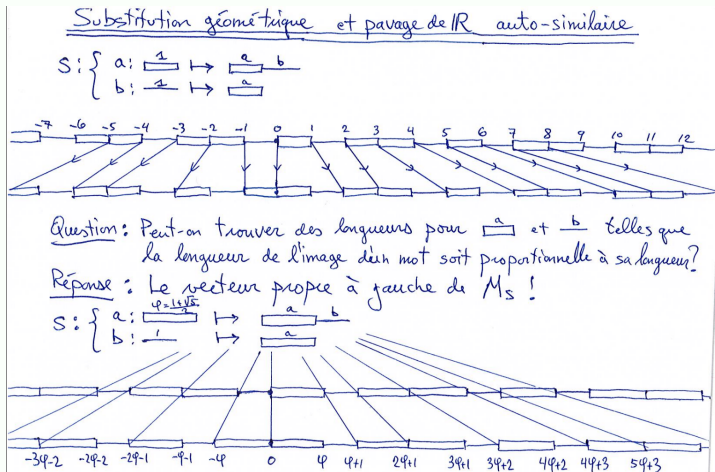 Substitution géométrique et pavage de ℝ auto-similaire
S: { a: 1 ↦ a b
b: 1 ↦ a
-7 -6 -5 -4 -3 -2 -1 0 1 2 3 4 5 6 7 8 9 10 11 12
Question: Peut-on trouver des longueurs pour a et b telles que
la longueur de l'image d'un mot soit proportionnelle à sa longueur?
Réponse: Le vecteur propre à gauche de Ms !
S: { a: φ=1+√5/2 ↦ a b
b: 1 ↦ a
-3φ-2 -2φ-2 -2φ-1 -φ-1 -φ 0 φ φ+1 2φ+1 3φ+1 3φ+2 4φ+2 4φ+3 5φ+3